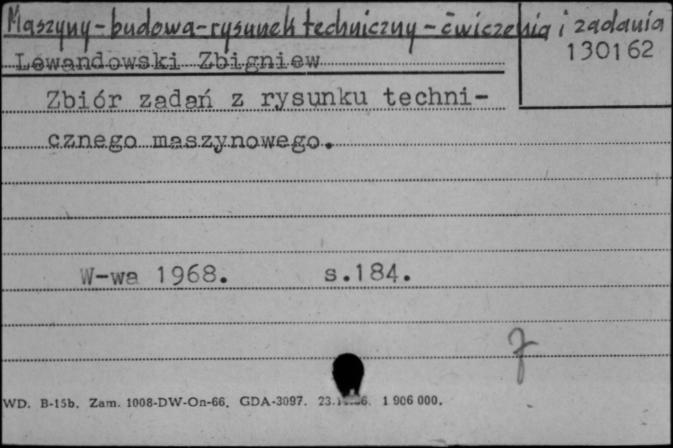 Maszyny-budowa-rysunek techniczny-ćwiczenia i zadania
130162
Lewandowski Zbigniew
Zbiór zadań z rysunku techni-
cznego maszynowego.
W-wa 1968. s.184.
WD. B-15b. Zam. 1008-DW-On-66. GDA-3097. 1 906 000.